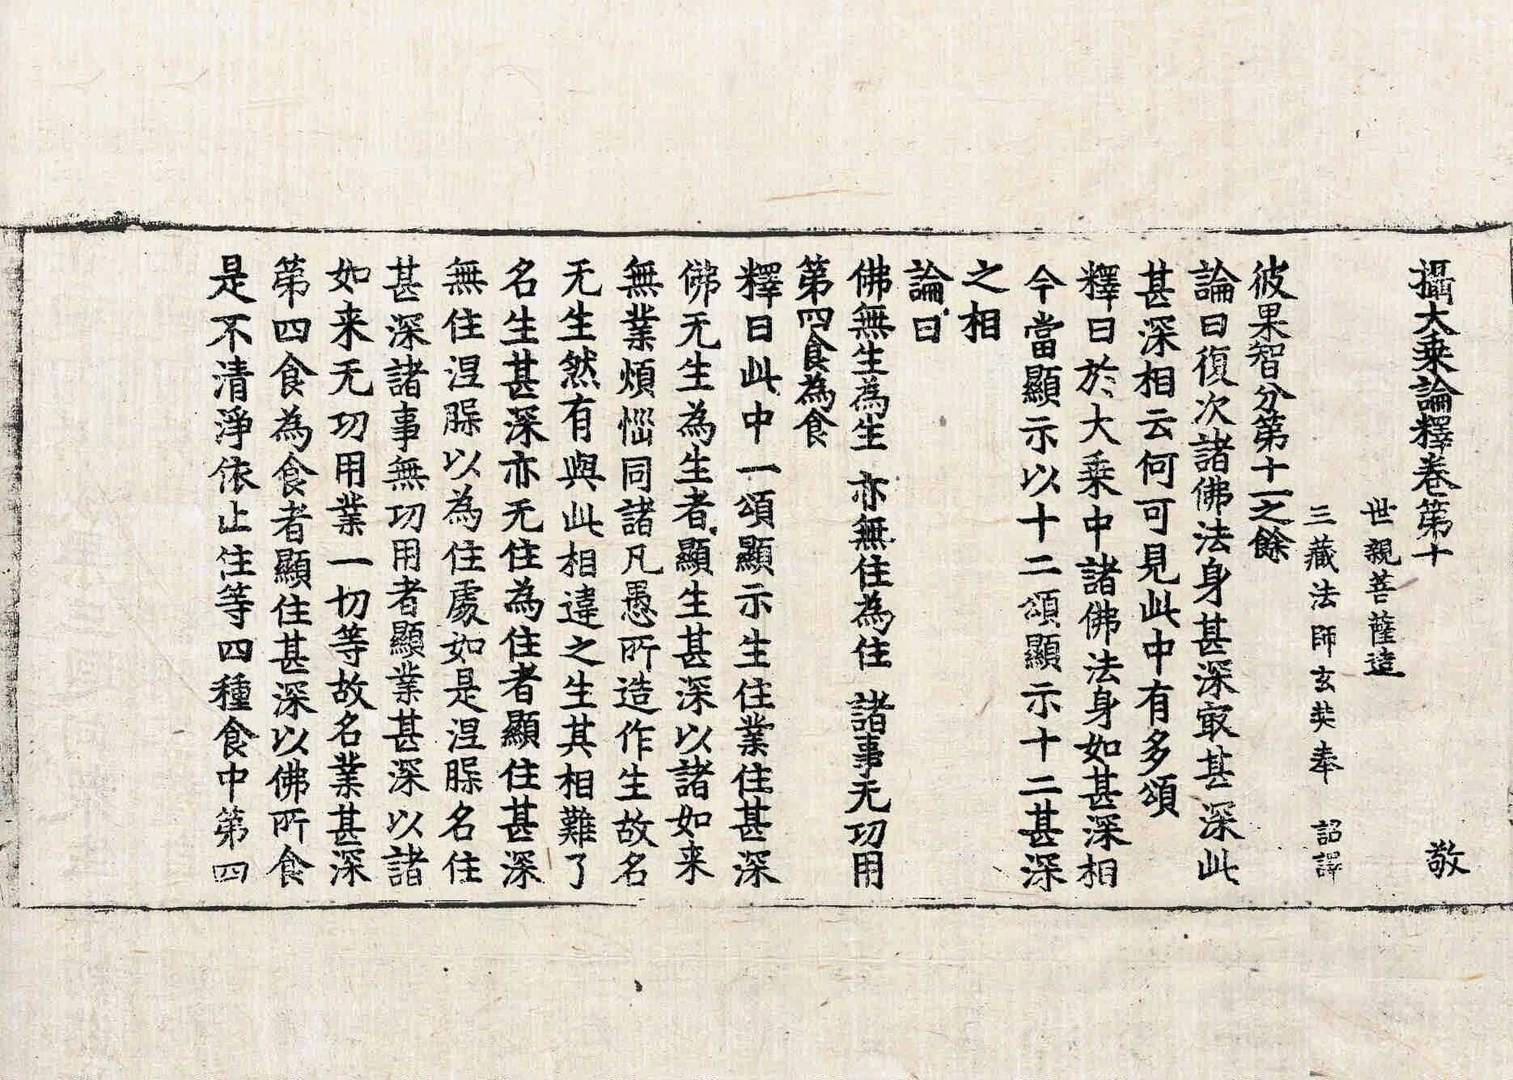 攝大乘論釋卷第十 敬
世親菩薩造
三藏法師玄奘奉 詔譯
彼果智分第十一之餘
論曰復次諸佛法身甚深㝡甚深此
甚深相云何可見此中有多頌
釋曰於大乘中諸佛法身如甚深相
今當顯示以十二頌顯示十二甚深
之相
論曰
佛無生為生 亦無住為住 諸事无功用
第四食為食
釋曰此中一頌顯示生住業住甚深
佛无生為生者顯生甚深以諸如来
無業煩惱同諸凡愚所造作生故名
无生然有與此相違之生其相難了
名生甚深亦无住為住者顯住甚深
無住涅槃以為住處如是涅槃名住
甚深諸事無功用者顯業甚深以諸
如来无功用業一切等故名業甚深
第四食為食者顯住甚深以佛所食
是不清淨依止住等四種食中第四